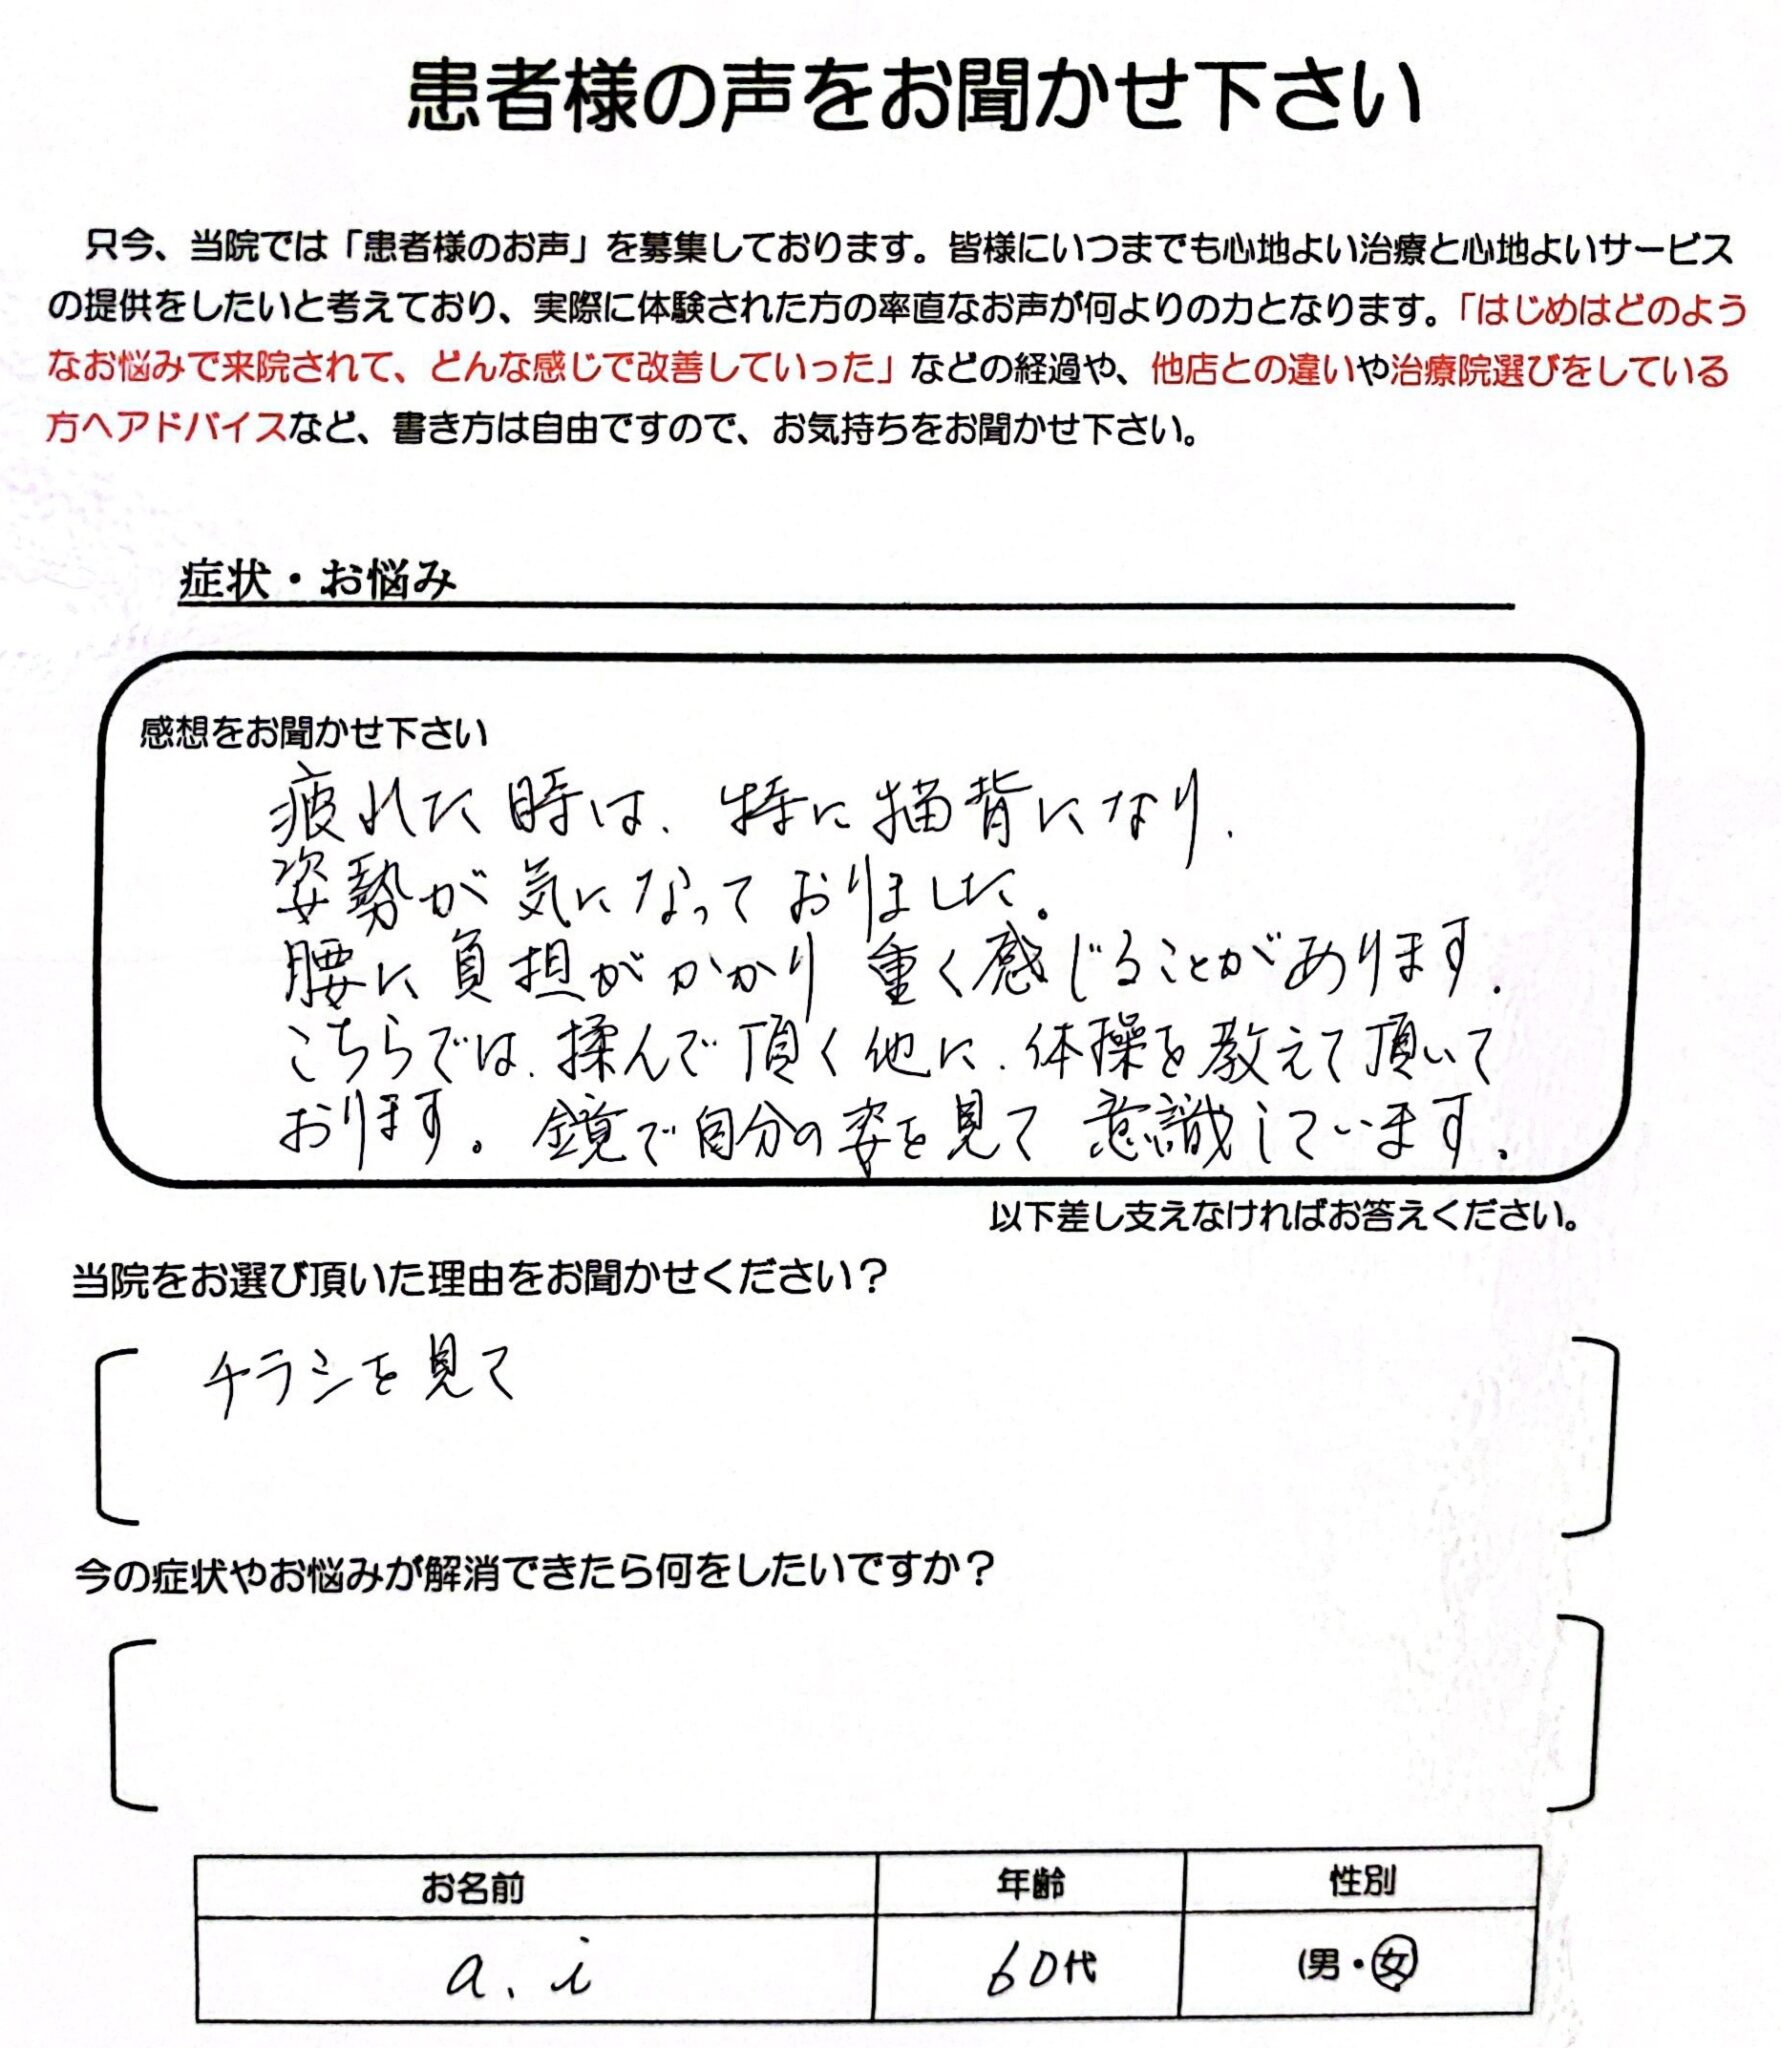 患者様の声をお聞かせ下さい
只今、当院では「患者様のお声」を募集しております。皆様にいつまでも心地よい治療と心地よいサービス
の提供をしたいと考えており、実際に体験された方の率直なお声が何よりの力となります。「はじめはどのよう
なお悩みで来院されて、どんな感じで改善していった」などの経過や、他店との違いや治療院選びをしている
方へアドバイスなど、書き方は自由ですので、お気持ちをお聞かせ下さい。
症状・お悩み
感想をお聞かせ下さい
疲れた時は、特に猫背になり、
姿勢が気になっておりました。
腰に負担がかかり重く感じることがあります。
こちらでは、揉んで頂く他に、体操を教えて頂いて
おります。鏡で自分の姿を見て意識しています。
以下差し支えなければお答えください。
当院をお選び頂いた理由をお聞かせください？
チラシを見て
今の症状やお悩みが解消できたら何をしたいですか？
お名前 年齢 性別
a.i 60代 (男・女